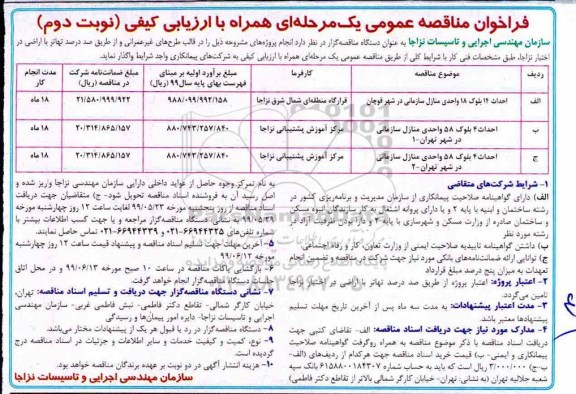 فراخوان مناقصه عمومی یک‌مرحله‌ای همراه با ارزیابی کیفی (نوبت دوم)
سازمان مهندسی اجرایی و تاسیسات نزاجا به عنوان دستگاه مناقصه‌گزار در نظر دارد انجام پروژه‌های مشروحه ذیل را در قالب طرح‌های غیرعمرانی و از طریق صد درصد تهاتر با اراضی در
اختیار نزاجا، طبق مشخصات فنی کار با شرایط کلی از طریق مناقصه عمومی یک مرحله‌ای همراه با ارزیابی کیفی به شرکت‌های پیمانکاری واجد شرایط واگذار نماید.
ردیف | موضوع مناقصه | کارفرما | مبلغ برآورد اولیه بر مبنای فهرست بهای پایه سال۹۹ (ریال) | مبلغ ضمانت‌نامه شرکت در مناقصه (ریال) | مدت انجام کار
الف | احداث ۱۴ بلوک ۱۸ واحدی منازل سازمانی در شهر قوچان | قرارگاه منطقه‌ای شمال شرق نزاجا | ۹۸۸/۰۹۹/۹۹۲/۱۵۸ | ۲۱/۵۸۰/۹۹۹/۹۲۲ | ۱۸ ماه
ب | احداث ۴ بلوک ۵۸ واحدی منازل سازمانی در شهر تهران-۱ | مرکز آموزش پشتیبانی نزاجا | ۸۸۰/۷۴۳/۲۵۷/۸۴۰ | ۲۰/۳۱۴/۸۶۵/۱۵۷ | ۱۸ ماه
ج | احداث ۴ بلوک ۵۸ واحدی منازل سازمانی در شهر تهران-۲ | مرکز آموزش پشتیبانی نزاجا | ۸۸۰/۷۴۳/۲۵۷/۸۴۰ | ۲۰/۳۱۴/۸۶۵/۱۵۷ | ۱۸ ماه
۱- شرایط شرکت‌های متقاضی
الف) دارای گواهینامه صلاحیت پیمانکاری از سازمان مدیریت و برنامه‌ریزی کشور در
رشته ساختمان و ابنیه با پایه ۲ و یا دارای پروانه اشتغال به کار سازندگان انبوه مسکن
و ساختمان صادره از وزارت مسکن و شهرسازی با پایه ۲ و دارا بودن ظرفیت آزاد در
رشته مورد نظر
ب) داشتن گواهینامه تاییدیه صلاحیت ایمنی از وزارت تعاون، کار و رفاه اجتماعی
ج) توانایی ارائه ضمانت‌نامه‌های بانکی مورد نیاز جهت شرکت در مناقصه و تضمین انجام
تعهدات به میزان پنج درصد مبلغ قرارداد
۲- اعتبار پروژه: اعتبار پروژه از طریق صد درصد تهاتر با اراضی در اختیار نزاجا
تامین می‌گردد.
۳- مدت اعتبار پیشنهادات: به مدت سه ماه پس از آخرین تاریخ مهلت تسلیم
پیشنهادها معتبر باشد.
۴- مدارک مورد نیاز جهت دریافت اسناد مناقصه: الف- تقاضای کتبی جهت
دریافت اسناد مناقصه با ذکر موضوع مناقصه به همراه روگرفت گواهینامه صلاحیت
پیمانکاری و ایمنی- ب) قیمت خرید اسناد مناقصه جهت هرکدام از ردیف‌های (الف-
ب-ج) ۳/۰۰۰/۰۰۰ ریال است که باید به حساب شماره ۶۱۵۸۸۰۰۱۸۴۳۰۷ بانک سپه
شعبه جلالیه تهران (به نشانی: تهران- خیابان کارگر شمالی بالاتر از تقاطع دکتر فاطمی)
به نام تمرکز وجوه حاصل از عواید داخلی دارایی سازمان مهندسی نزاجا واریز شده و
اصل رسید آن به فروشنده اسناد مناقصه تحویل شود- ج) متقاضیان جهت دریافت
اسناد مناقصه از روز پنجشنبه مورخه ۹۹/۰۵/۲۳ لغایت ساعت ۱۲ روز چهارشنبه
به نشانی دستگاه مناقصه‌گزار مراجعه و یا جهت کسب اطلاعات بیشتر با
شماره تلفن‌های ۶۶۹۴۴۳۲۵-۰۲۱ و ۶۶۹۴۴۳۳۹-۰۲۱ تماس حاصل نمایند.
۵- آخرین مهلت جهت تسلیم اسناد مناقصه و پیشنهاد قیمت ساعت ۱۲ روز چهارشنبه
مورخه ۹۹/۰۶/۱۲
۶- بازگشایی پاکات مناقصه در ساعت ۱۰ صبح مورخه ۹۹/۰۶/۱۳ و در محل اتاق
دستگاه مناقصه‌گزار انجام خواهد گرفت.
۷- نشانی دستگاه مناقصه‌گزار جهت دریافت و تسلیم اسناد مناقصه: تهران،
خیابان کارگر شمالی- تقاطع دکتر فاطمی- نبش فاطمی غربی- سازمان مهندسی
اجرایی و تاسیسات نزاجا- دایره امور پیمان‌ها و رسیدگی
۸- دستگاه مناقصه‌گزار در رد یا قبول هر یک از پیشنهادات مختار می‌باشد.
۹- نوع، کمیت و کیفیت خدمات و سایر اطلاعات و جزئیات در اسناد مناقصه درج
گردیده است.
۱۰- هزینه انتشار آگهی در دو نوبت بر عهده برندگان مناقصه خواهد بود.
سازمان مهندسی اجرایی و تاسیسات نزاجا